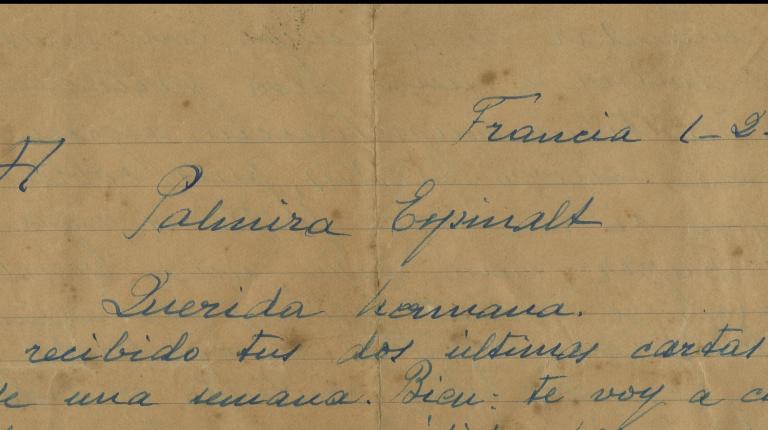 Francia 1-2-
A
Palmira Espinalt
Querida hermana.
recibido tus dos ultimas cartas
de una semana. Bien: te voy a co